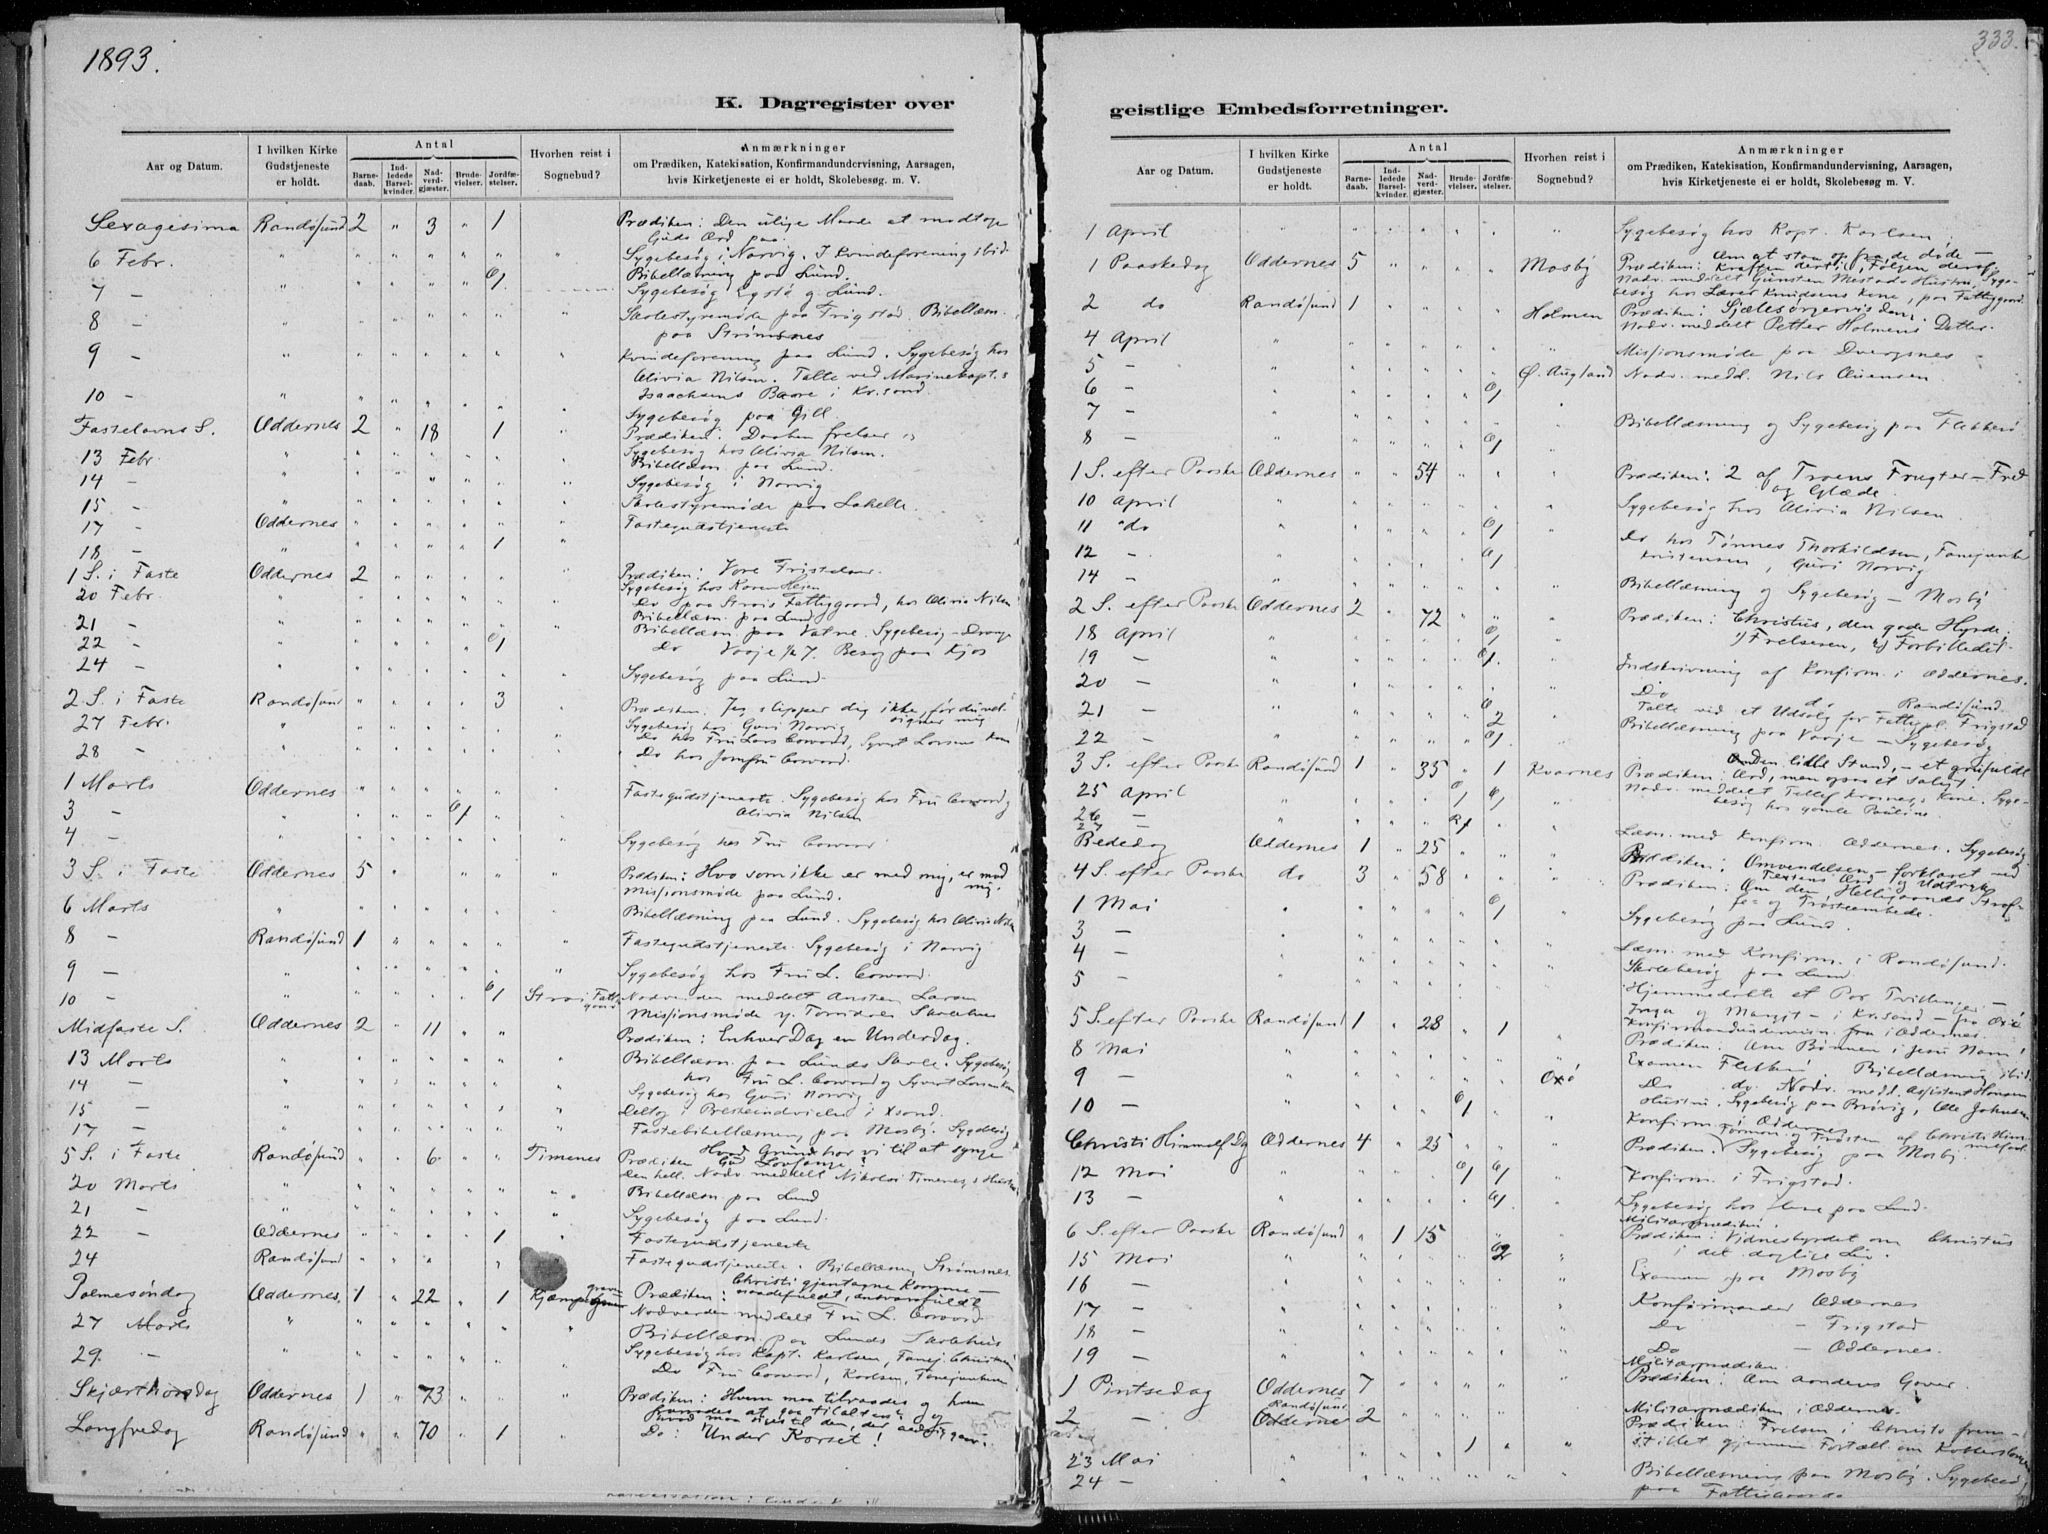 1893.
K. Dagregister over
Aar og Datum.
I hvilken Kirke Gudstjeneste er holdt.
Antal
Barnedaab.
Indledede Barselkvinder.
Nadverdgjæster.
Brudevielser.
Jordfæstelser.
Hvorhen reist i Sognebud?
Anmærkninger
om Prædiken, Katekisation, Konfirmandundervisning, Aarsagen,
hvis Kirketjeneste ei er holdt, Skolebesøg m. V.
Sexagesima Randøsund 2 " 3 " 1 Prædiken: Den ulige Maade at modtage
Guds Ord paa.
6 Febr. Sygebesøg i Narvig. I Kvindeforening ibid.
7 — 1 Bibellæsning paa Lund.
Sygebesøg Egstø g. Lund.
8 — Skolestyremøde paa Frigstad Bibellæsn.
paa Strømsnes
9 — Kvindeforening paa Lund. Sygebesøg hos
Olivia Nilsen. Talte ved Marinekapt.s
10 — Isaachsens Baare i Kr.sand.
Sygebesøg paa Gill
Fastelavns S. Oddernes 2 " 18 " 1 Prædiken: Daaben frelser os
13 Febr. Sygebesøg hos Olivia Nilsen.
Bibellæsn. paa Lund.
14 — Sygebesøg i Norvig
15 — Skolestyremøde paa
17 — Oddernes Fastegudstjeneste
18 — 1
1 S. i Faste Oddernes 2 Prædiken: Vore Fristelser.
20 Febr. Sygebesøg hos Karen
Do paa Strais Fattiggaard, hos Olivia Nilsen
21 — Bibellæsn. paa Lund
22 — 1 Bibellæsn paa Valne. Sygebesøg
24 — Do Vaaje Besøg paa Kjos
Sygebesøg paa Lund.
2 S. i Faste Randøsund 3 Prædiken: Jeg slipper dig ikke, før du velsigner mig
27 Febr. Sygebesøg hos Guri Norvig
28 — Do hos Fru Lars Coward, Syvert Larsens Kone
Do hos Jomfru Coward.
1 Marts Oddernes Fastegudstjeneste. Sygebesøg hos Fru Coward og
3 — 1 Olivia Nilsen
4 — Sygebesøg hos Fru Coward
3 S. i Faste Oddernes 5 Prædiken: Hvo som ikke er med mig, er mod mig.
Missionsmøde paa Lund.
6 Marts Bibellæsning paa Lund. Sygebesøg hos Olivia Nilsen
8 — Randøsund 1 Fastegudstjeneste. Sygebesøg i Norvig
9 — Sygebesøg hos Fru L. Coward.
10 — 1 Strai Fattiggaard Nadverden meddelt Ansten Larsen
Missionsmøde v. Torridals Skolehus
Midfaste S. Oddernes 2 " 11 Prædiken: Enhver Dag en Underdag.
13 Marts Bibellæsn. paa Lunds Skole. Sygebesøg
14 — hos Fru L. Coward og Syvert Larsens Kone
15 — Sygebesøg hos Guri Norvig
Deltog i Presteindvielse i Xsand.
17 — Fastebibellæsning paa Mosby. Sygebesøg
5 S. i Faste Randøsund 6 Timenes Prædiken Hvad Grund har vi til at synge Gud Lovsange?
20 Marts Den hell. Nadv. meddelt Nikolai Timenes's Hustru
Bibellæsn paa Lund
21 — Sygebesøg paa Lund.
22 — Oddernes 1 Fastegudstjeneste
24 Randøsund Fastegudstjeneste. Bibellæsning Strømsnes.
Palmesøndag Oddernes. 1 " 22 " 1 Prædiken: Christi gjentagne Komme — naadefuldt, ansvarsfuldt
27 Marts Nadverden meddelt Fru L. Coward
Bibellæsn. paa Lunds Skolehus
29. — Sygebesøg hos Kapt. Karlsen,
Do Fru Coward, Karlsen,
Skjærthorsdag Oddernes 1 " 73 Prædiken: Hvem maa tilraades og hvem
fraraades at gaa til alters? og
Hvad maa siges til den, der
Langfredag Randøsund 70 " 1 Do: Under Korset!
333.
geistlige Embedsforretninger.
Aar og Datum.
I hvilken Kirke Gudstjeneste er holdt.
Antal
Barnedaab.
Indledede Barselkvinder.
Nadverdgjæster.
Brudevielser.
Jordfæstelser.
Hvorhen reist i Sognebud?
Anmærkninger
om Prædiken, Katekisation, Konfirmandundervisning, Aarsagen,
hvis Kirketjeneste ei er holdt, Skolebesøg m. V.
1 April Sygebesøg hos Kapt. Karlsen
1 Paaskedag Oddernes 5 Mosby Prædiken: Om at staa op fra de døde — Kraften dertil, Følgen deraf
Nadv. meddelt Gunsten Mestads Hustru, Sygebesøg
hos Lærer Knudsens Kone, paa Fattiggaard.
2 do Randøsund 1 Holmen Prædiken: Sjælesørgervisdom.
Nadv. meddelt Petter Holmens Datter.
4 April Missionsmøde paa Dvergsnes
5 — Ø. Augland Nadv. medd. Nils Ouensen
6 — 1
7 — Bibellæsning og Sygebesøg paa Flekkerø
8 — 1
1 S. efter Paaske Oddernes 54 Prædiken: 2 af Troens Frugter — Fred
og Glæde.
10 April Sygebesøg hos Olivia Nilsen
11 do 1 Do hos Tønnes Thorkildsen,
12 — 1 Kristensen, Guri Norvig
14 — Bibellæsning og Sygebesøg — Mosby
2 S. efter Paaske Oddernes 2 " 72 Prædiken: Christus, den gode Hyrde,
18 April 1 1) Frelseren, 2) Forbilledet.
19 — 1 Indskrivning af Konfirm. i Oddernes.
20 — Do do Randøsund.
21 — 2 Talte ved et Udsalg for Frigstad
22 — 1 Bibellæsning paa Vaaje — Sygebesøg
3 S. efter Paaske Randøsund 1 " 35 " 1 Kvarnes Prædiken: Om Den lille Stund, — et grufuldt Ord, men ogsaa et saligt.
25 April 1 1 Nadv. meddelt Tellef Kvarnes's Kone. Sygebesøg
26 — hos gamle Pauline
27 — 1
Bededag Oddernes 1 " 25 Læsn. med Konfirm. Oddernes. Sygebesøg
Prædiken: Omvendelsen — forklaret ved Textens Ord og Udtryk
4 S. efter Paaske do 3 " 58 Prædiken: Om den Helligaands Straffe-
og Trøsteembede.
1 Mai 1 Sygebesøg paa Lund.
3 —
4 — Læsn. med Konfirm. i Randøsund.
5 — Skolebesøg paa Lund
Hjemmedøbte et Par Tvillinger —
5 S. efter Paaske Randøsund 1 " 28 " 1 Inga og Margit — i Kr.sand — fra Oxø
Konfirmandundervisn. fra i Oddernes.
8 Mai Prædiken: Om Bønnen i Jesu Navn!
9 — Oxø Examen Flekkerø. Bibellæsning ibid.
10 — 1 Do do. Nadv. medd. Assistent Hansens
Hustru. Sygebesøg paa Brøvig, Ole Johnsen
Konfirm. Oddernes
Christi Himmelf. Dg Oddernes 4 " 25 Prædiken. Formen og Trøsten af Christi Himmelfart
Sygebesøg paa Mosby.
12 Mai 1 1 Konfirm. i Frigstad.
13 — 1 Sygebesøg hos Lene paa Lund.
Militærprædiken.
6 S. efter Paaske Randøsund 1 15 Prædiken: Vidnesbyrdet om Christus
15 Mai 2 i det daglige Liv.
16 — Examen paa Mosby
17 — Konfirmander Oddernes
18 — Do — Frigstad
19 — Do — Oddernes.
Militærprædiken.
1 Pintsedag Oddernes 7 Prædiken: Om Aandens Gaver.
2 — Randøsund Oddernes 2 Militærprædiken i Oddernes.
Prædiken: Frelsen i Christo fremstillet
gjennem Fortæll. om
23 Mai 1
24 — Bibellæsning paa Mosby. Sygebesøg
paa Fattiggaarde